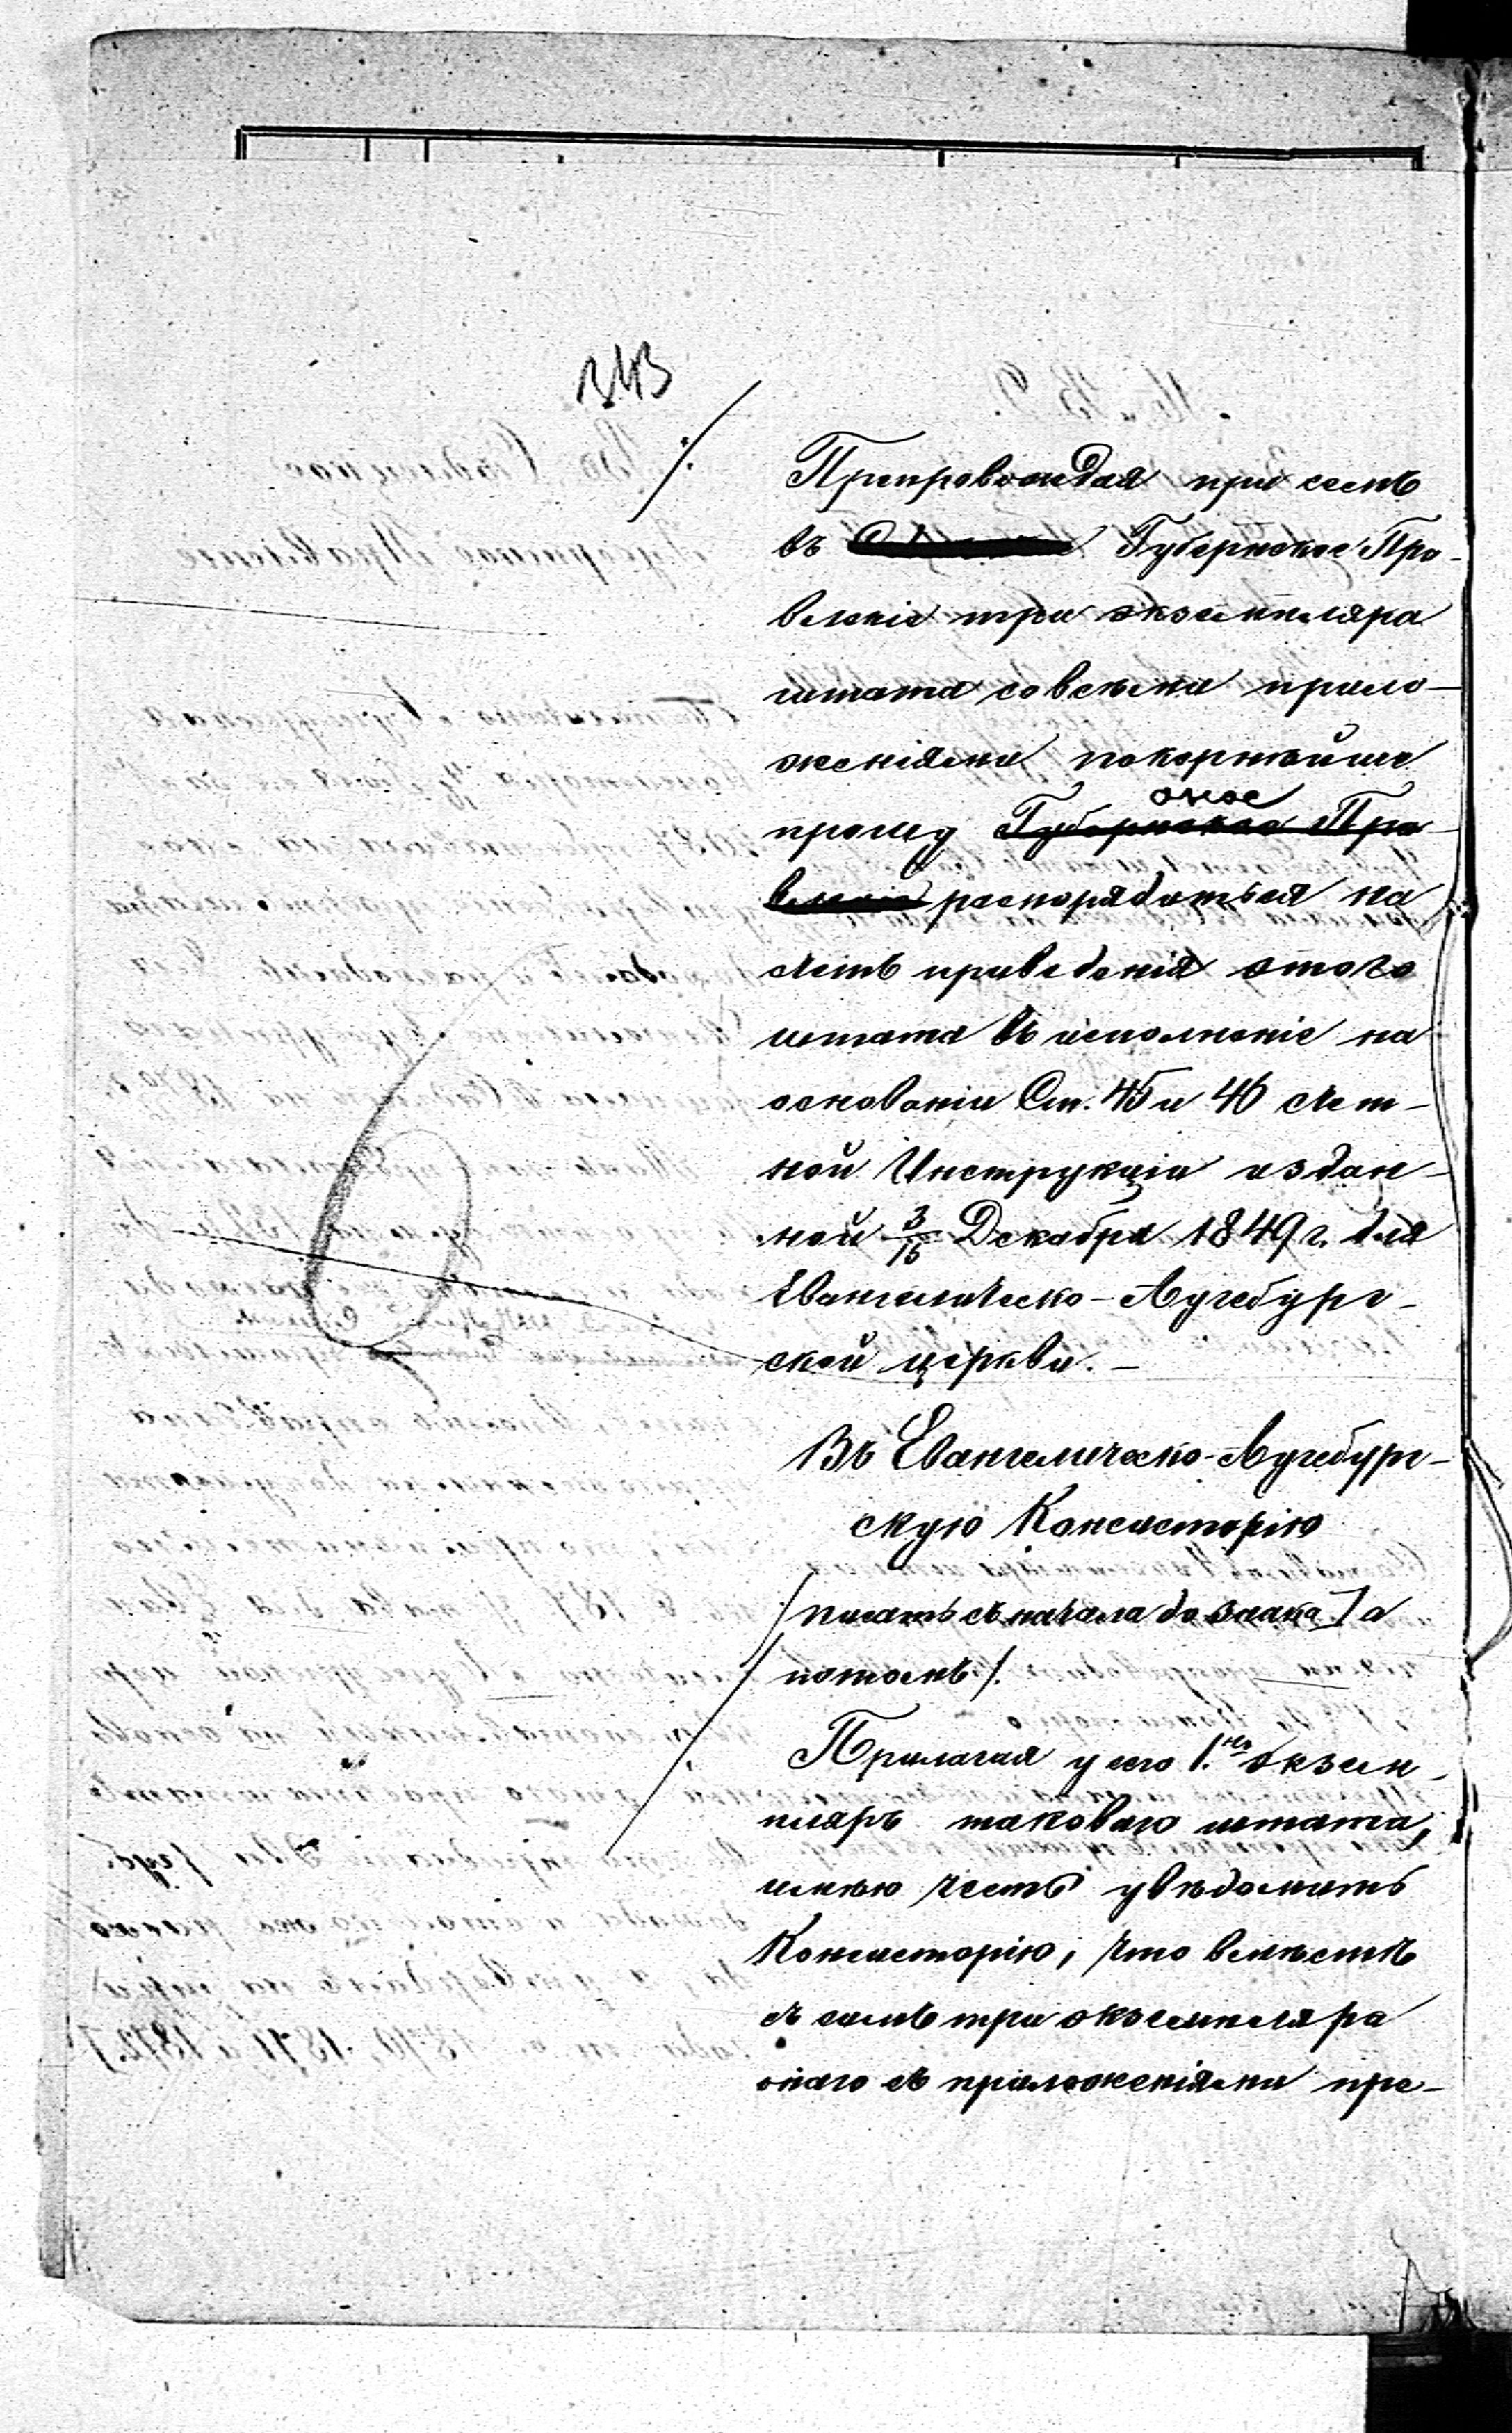 Препровождая при семъ
въ Губернское Пра-
вленіе три экземпляра
штата со всѣми прило-
женіями покорнѣйше
оное
прошу Губернское Пра-
вленіе распорядиться на
счетъ приведенія этого
штата въ исполненіе на
основаніи Ст. 45 и 46 счет-
ной Инструкціи издан-
ной 3/15 Декабря 1849 г. для
Евангелическо-Аугсбург-
ской церкви. —
Въ Евангелическо-Аугсбург-
скую Консисторію
/писать съ начала до знака ] а
потомъ/.
Прилагая у сего 1. экзем-
пляръ таковаго штата,
имѣю честь увѣдомить
Консисторію, что вмѣстѣ
съ симъ три экземпляра
онаго съ приложеніями пре-